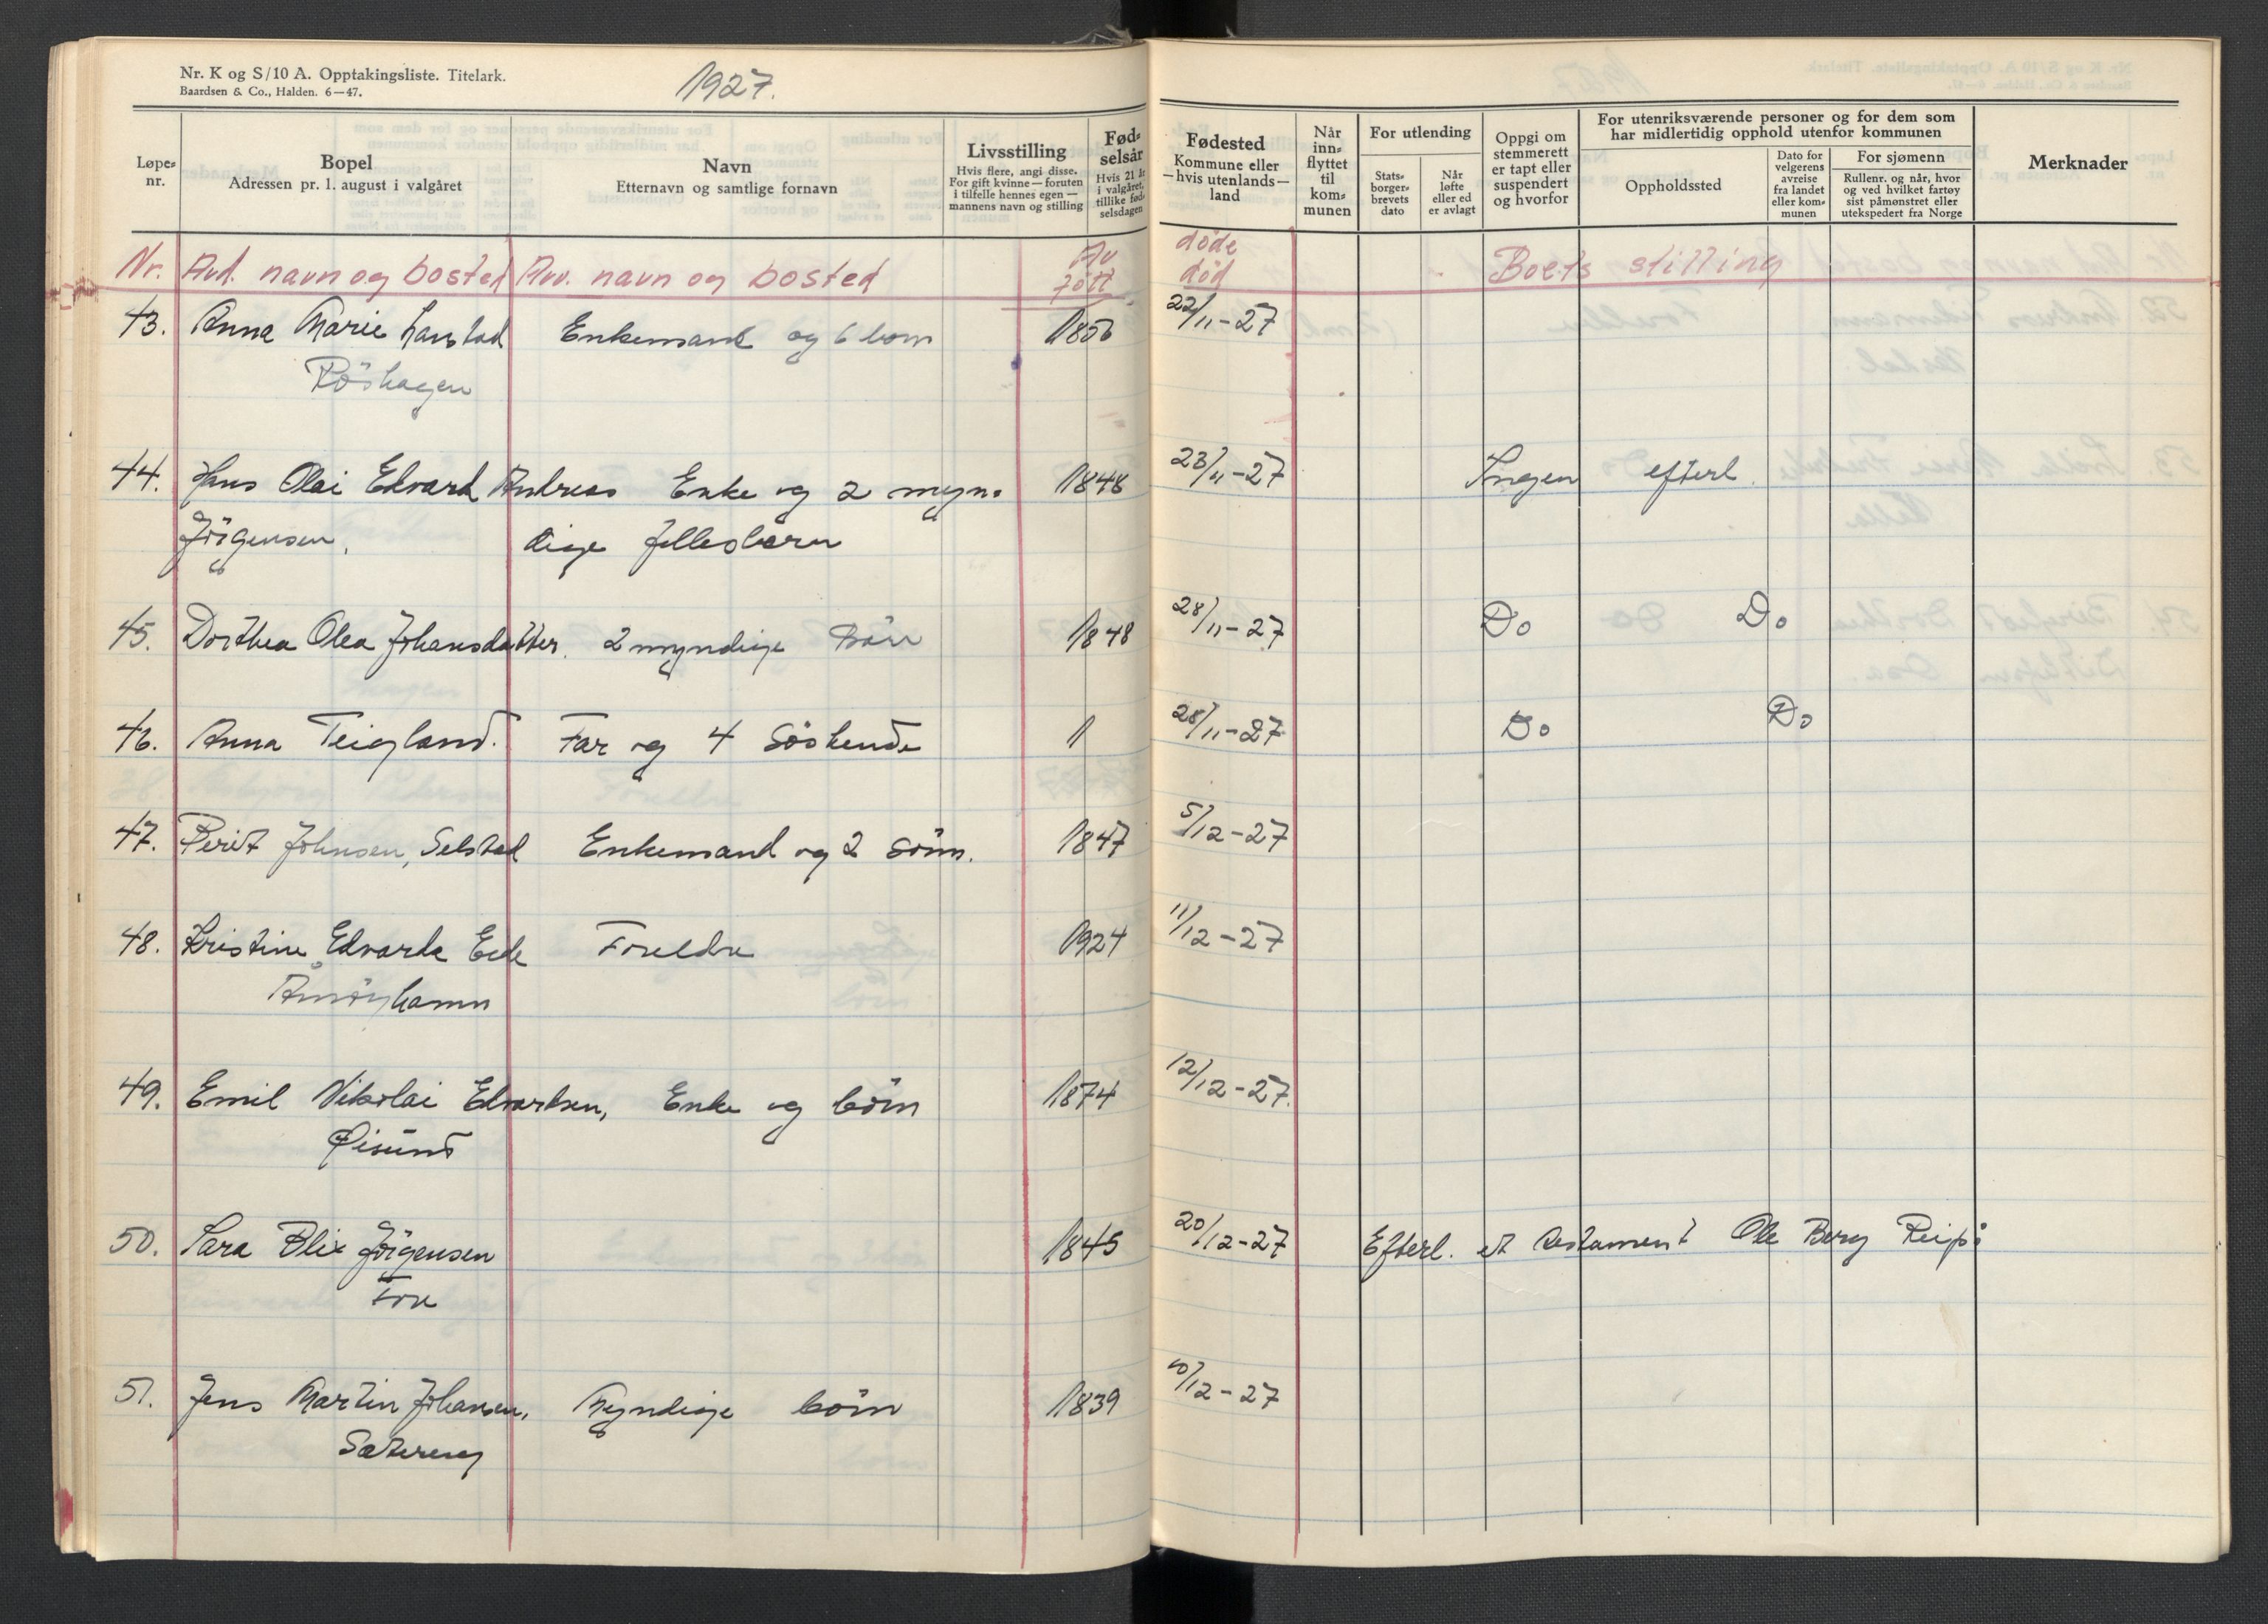 Nr. K og S/10 A. Opptakingsliste. Titelark.
Baardsen & Co., Halden. 6—47.
1927.
Løpe-
nr.
Bopel
Adressen pr. 1. august i valgåret
Navn
Etternavn og samtlige fornavn
Livsstilling
Hvis flere, angi disse.
For gift kvinne — foruten
i tilfelle hennes egen —
mannens navn og stilling
Fød-
selsår
Hvis 21 år
i valgåret,
tillike fød-
selsdagen
Fødested
Kommune eller
—hvis utenlands—
land
Når
inn-
flyttet
til
kom-
munen
For utlending
Stats-
borger-
brevets
dato
Når
løfte
eller ed
er avlagt
Oppgi om
stemmerett
er tapt eller
suspendert
og hvorfor
For utenriksværende personer og for dem som
har midlertidig opphold utenfor kommunen
Oppholdssted
Dato for
velgerens
avreise
fra landet
eller kom-
munen
For sjømenn
Rullenr. og når, hvor
og ved hvilket fartøy
sist påmønstret eller
utekspedert fra Norge
Merknader
Nr. Avd. navn og bosted Arv. navn og bosted Av døde
født død Boets stilling
43. Anna Marie Larstad Enkemand og 6 born 1856 22/11-27
Röshagen
44. Hans Olai Edvard Andreas Enke og 2 myn- 1848 23/11-27 Ingen efterl.
Jörgensen, dige fellesbörn
45. Dorthea Olea Johansdatter. 2 myndige börn 1848 28/11-27 Do Do
46. Anna Teigland. Far og 4 Söskende 1 28/11-27 Do Do
47. Berit Johnsen, Selstad Enkemand og 2 sönn. 1847 5/12-27
48. Kristine Edvarda Eide Foreldre 1924 11/12-27
Åmöyhamn
49. Emil Nikolai Edvardsen, Enke og börn 1874 12/12-27.
Øisund
50. Sara Blix Jörgensen 1845 20/12-27 Efterl. et testament Ole Berg Reipå
Fore
51. Jens Martin Johansen, Myndige börn 1839 10/12-27